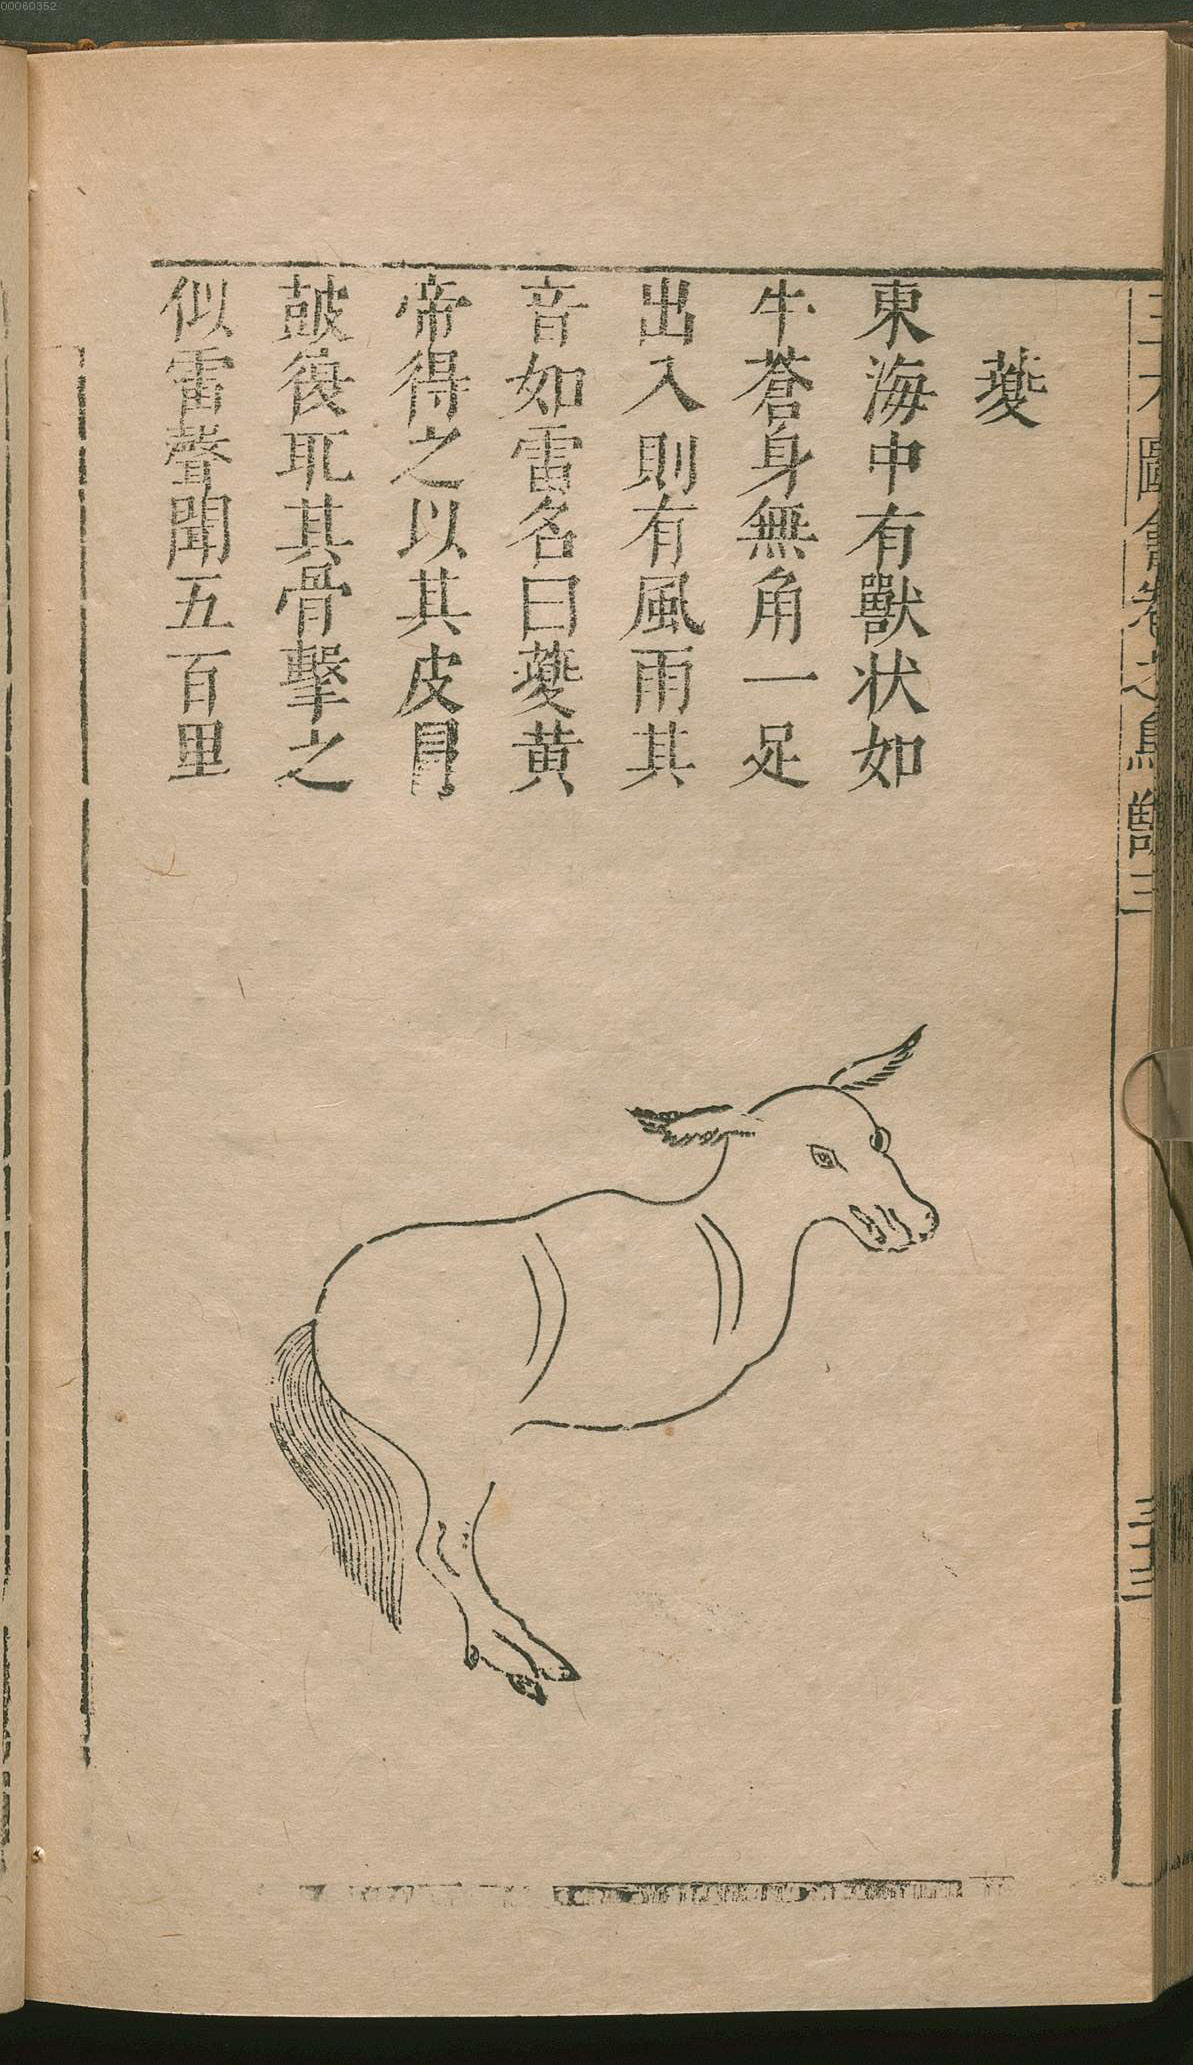 夔
東海中有獸状如
牛蒼身無角一足
出入則有風雨其
音如雷名曰夔黄
帝得之以其皮冐
皷復取其骨擊之
似雷聲聞五百里
三才圖會卷之鳥獸三
三十三
00060352